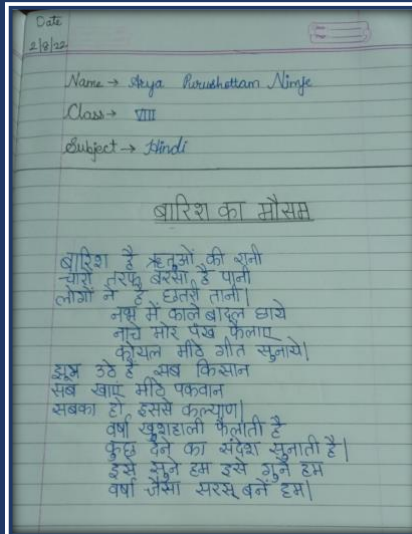 Date
2/8/22
Name → Arya Purushottam Nimje
Class → VIII
Subject → Hindi
बारिश का मौसम
बारिश है ऋतुओं की रानी
चारों तरफ बरसा है पानी
लोगों ने है छातरी तानी।
नभ में काले बादल छाये
नाचे मोर पंख फैलाए
कोयल मीठे गीत सुनाये।
झूम उठे है सब किसान
सब खाएं मीठे पकवान
सबका हो इससे कल्याण।
वर्षा खुशहाली फैलाती है
कुछ देने का संदेश सुनाती है।
इसे सुने हम इसे गुने हम
वर्षा जैसा सरस बनें हम।